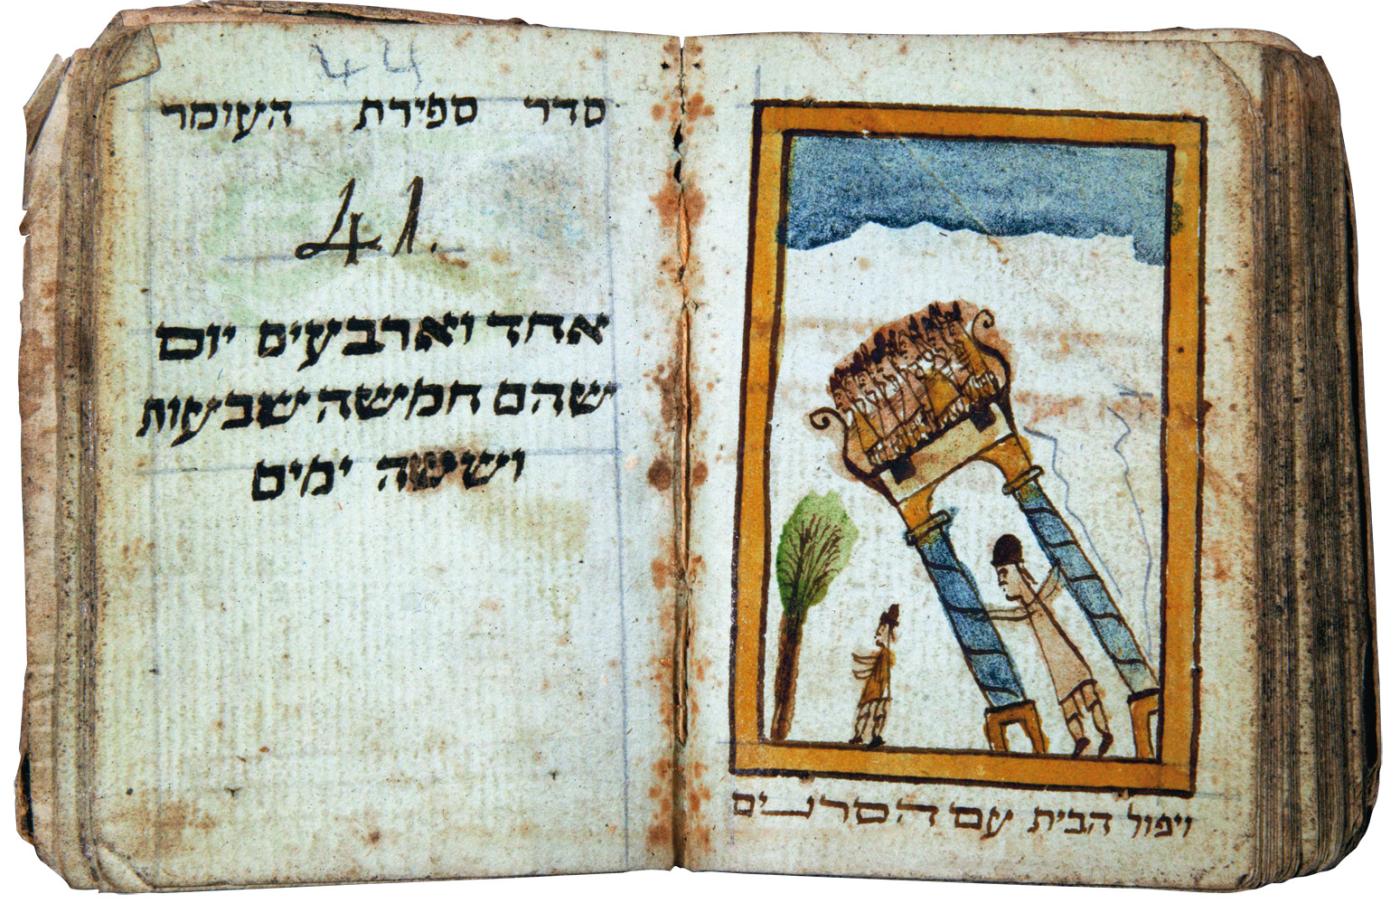 44
סדר ספירת העומר
41.
אחד וארבעים יום
שהם חמשה שבעות
וששה ימים
ויפול הבית עם הסרנים